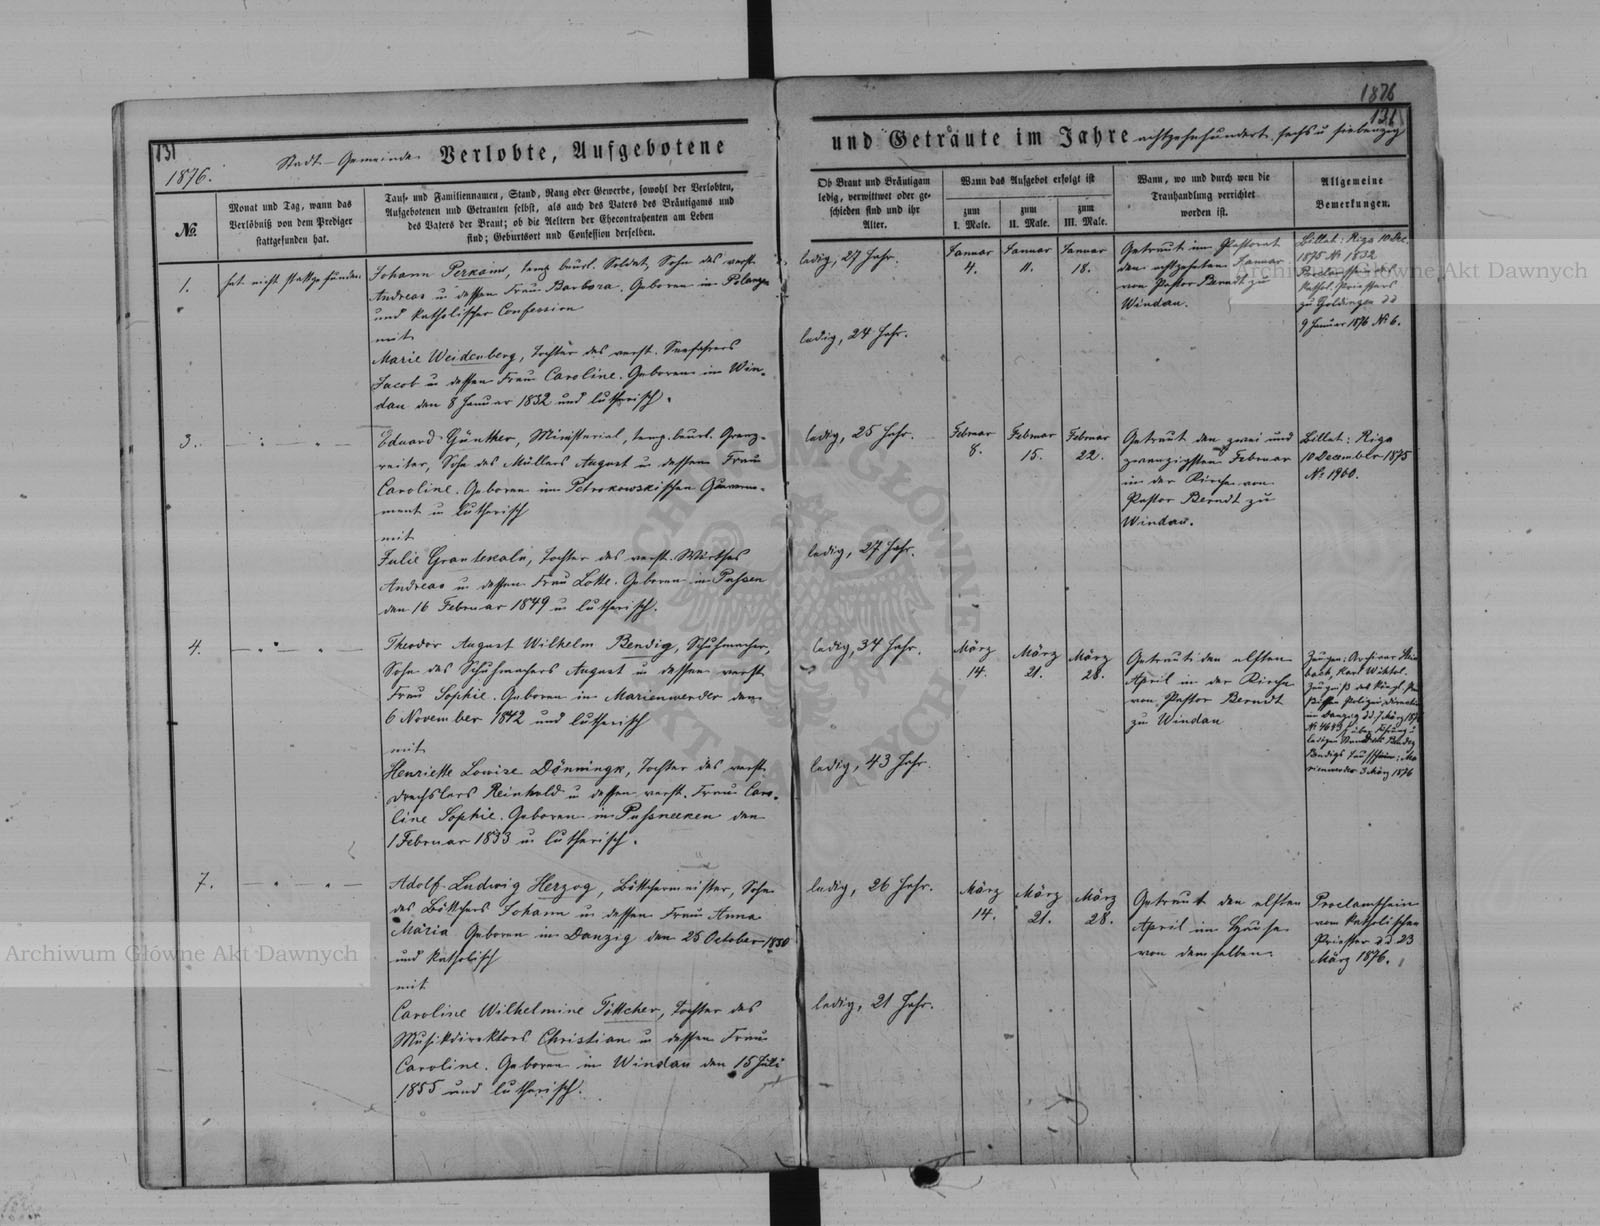 131
1876.
Stadt-Gemeinde Verlobte, Aufgebotene
№.
Monat und Tag, wann das
Verlöbniß von dem Prediger
stattgefunden hat.
Tauf- und Familiennamen, Stand, Rang oder Gewerbe, sowohl der Verlobten,
Aufgebotenen und Getrauten selbst, als auch des Vaters des Bräutigams und
des Vaters der Braut; ob die Aeltern der Ehecontrahenten am Leben
sind; Geburtsort und Confession derselben.
1.
hat nicht stattgefunden
Johann Perkams, temp. beurl. Soldat, Sohn des verst.
Andreas u dessen Frau Barbora. Geboren in Polangen
und katholischer Confession
mit
Marie Weidenberg, Tochter des verst. Seefahrers
Jacob u dessen Frau Caroline. Geboren in Win-
dau den 8 Januar 1832 und lutherisch.
3.
Eduard Günther, Ministerial, temp. beurl. Grenz-
reiter, Sohn des Müllers August u dessen Frau
Caroline. Geboren im Petrokowskischen Gouverne-
ment u lutherisch
mit
Julie Grantskaln, Tochter des verst. Wirthes
Andreas u dessen Frau Lotte. Geboren in Pussen
den 16 Februar 1849 u lutherisch.
4.
Theodor August Wilhelm Bendig, Schuhmacher,
Sohn des Schuhmachers August u dessen verst.
Frau Sophie. Geboren in Marienwerder den
6 November 1842 und lutherisch
mit
Henriette Louise Dönningk, Tochter des verst.
Drechslers Reinhold u dessen verst. Frau Caro-
line Sophie. Geboren in Pussneeken den
1 Februar 1833 u lutherisch.
7.
Adolf Ludwig Herzog, Böttchermeister, Sohn
des Böttchers Johann u dessen Frau Anna
Maria Geboren in Danzig den 25 October 1850
und katholisch
mit
Caroline Wilhelmine Töttcher, Tochter des
Musikdirektors Christian u dessen Frau
Caroline. Geboren in Windau den 15 Juli
1855 und lutherisch.
1876
131
und Getraute im Jahre achtzehnhundert sechs u siebenzig
Ob Braut und Bräutigam
ledig, verwittwet oder ge-
schieden sind und ihr
Alter.
Wann das Aufgebot erfolgt ist
zum
I. Male.
zum
II. Male.
zum
III. Male.
Wann, wo und durch wen die
Trauhandlung verrichtet
worden ist.
Allgemeine
Bemerkungen.
ledig, 27 Jahr.
ledig, 24 Jahr.
Januar
4.
Januar
11.
Januar
18.
Getraut im Pastorat
den achtzehnten Januar
von Pastor Berndt zu
Windau.
Billet: Riga 10 Dec.
1875 № 1832
Proclamschein des
kathol. Priesters
zu Goldingen dd
9 Januar 1876 № 6.
ledig, 25 Jahr.
ledig, 27 Jahr.
Februar
8.
Februar
15.
Februar
22.
Getraut den zwei und
zwanzigsten Februar
in der Kirche von
Pastor Berndt zu
Windau.
Billet: Riga
10 December 1875
№ 1960.
ledig, 34 Jahr.
ledig, 43 Jahr.
März
14.
März
21.
März
28.
Getraut den elften
April in der Kirche
von Pastor Berndt
zu Windau
in Danzig dd. 7. März 1876
rienwerder 3 März 1876
ledig, 26 Jahr.
ledig, 21 Jahr.
März
14.
März
21.
März
28.
Getraut den elften
April im Hause
von demselben.
Proclamschein
vom katholischen
Priester dd 23
März 1876.
Archiwum Główne Akt Dawnych
Archiwum Główne Akt Dawnych
ARCHIWUM GŁÓWNE AKT DAWNYCH